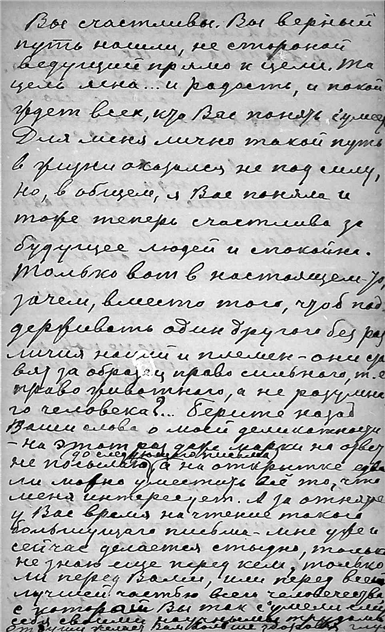 Вы счастливы. Вы верный
путь нашли, не стороной
ведущий прямо к цели. Та
цель ясна... и радость, и покой
ждет всех, кто Вас понять сумеет
Для меня лично такой путь
в жизни оказался не под силу,
но, в общем, я Вас поняла и
тоже теперь счастлива за
будущее людей и спокойна.
Только вот в настоящем-то,
зачем, вместо того, чтоб под-
держивать один другого без раз
личия наций и племен - они
взя за образец право сильного, т.е.
право животного, а не разумно
го человека?... Берите назад
Ваши слова о моей деликатности
- на этот раз даже марки на ответ
не посылаю, а на открытке едва
до следующего письма
ли можно уместить всё то, что
меня интересует. А за отнятое
у Вас время на чтение такого
большущего письма - мне уже и
сейчас делается стыдно, только
не знаю еще перед кем, только
ли перед Вами, или перед всею
лучшей частью всего человечества
с которой Вы так сумели
себя своими научными трудами
от души желаю Вам